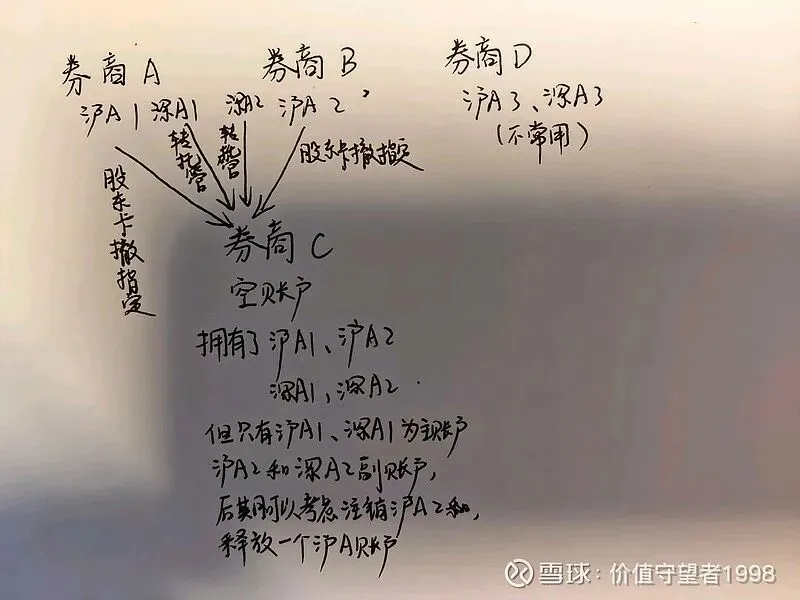 券商A
沪A1 深A1
券商B
深A2 沪A2，
券商D
沪A3、深A3
(不常用)
股东卡撤指定
转托管
转托管
股东卡撤指定
券商C
空账户
拥有了沪A1、沪A2
深A1，深A2.
但只有沪A1、深A1为主账户
沪A2和深A2副账户，
后期可以考虑注销沪A2和，
释放一个沪A账户
雪球：价值守望者1998